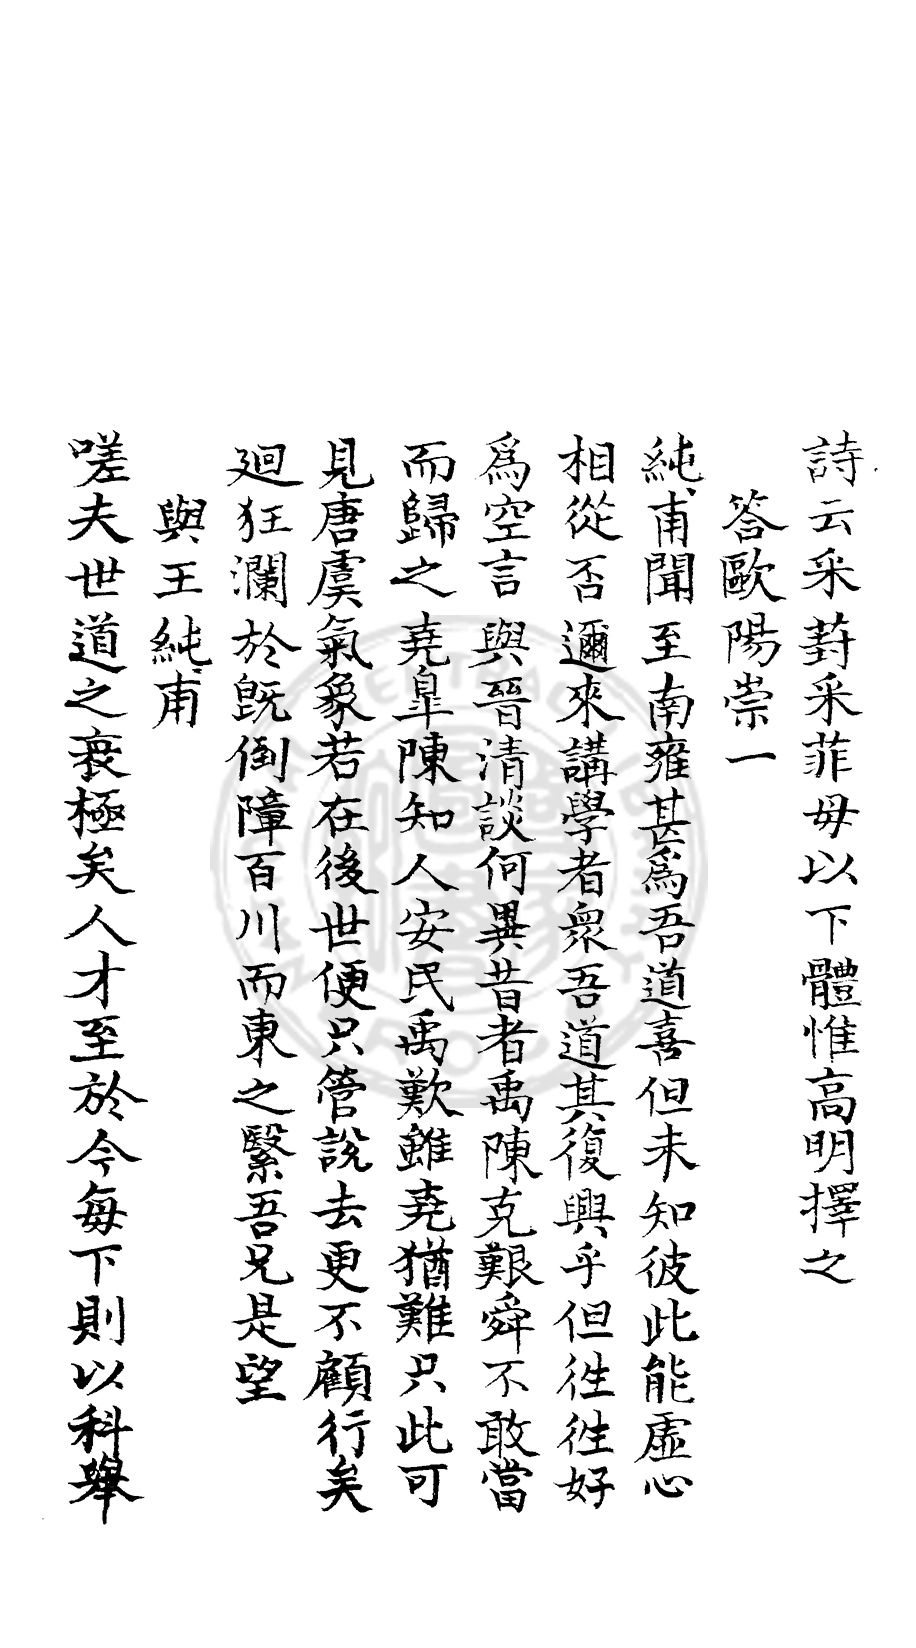 詩云采葑采菲毋以下體惟高明擇之
答歐陽崇一
純甫聞至南雍甚爲吾道喜但未知彼此能虛心
相從否邇來講學者衆吾道其復興乎但徃徃好
爲空言與晉清談何異昔者禹陳克艱舜不敢當
而歸之堯臯陳知人安民禹歎雖堯猶難只此可
見唐虞氣象若在後世便只管說去更不顧行矣
廻狂瀾於旣倒障百川而東之繄吾兄是望
與王純甫
嗟夫世道之衰極矣人才至於今每下則以科舉